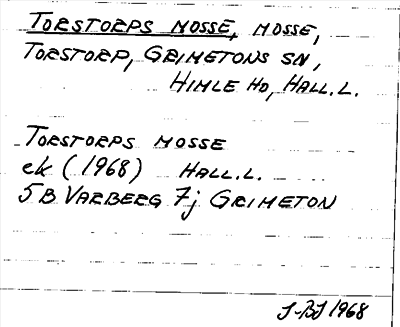 TORSTORPS MOSSE, MOSSE,
TORSTORP, GRIMETONS SN,
HIMLE HD, HALL.L.
TORSTORPS MOSSE
ek (1968) HALL.L.
5B VARBERG 7j GRIMETON
J-BJ 1968